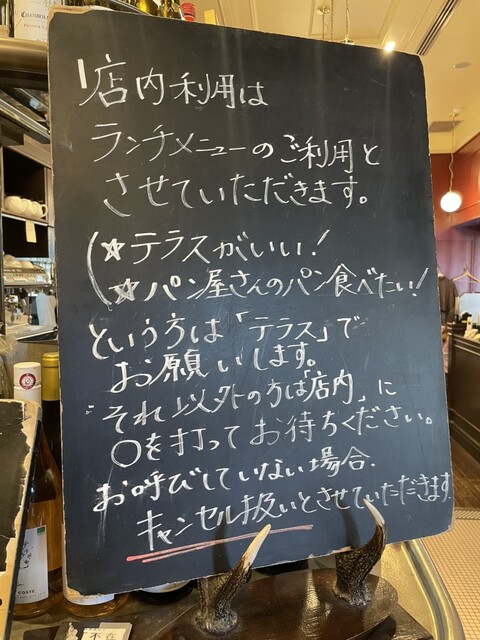 店内利用は
ランチメニューのご利用と
させていただきます。
☆テラスがいい!
☆パン屋さんのパン食べたい!
という方は「テラス」で
お願いします。
それ以外の方は「店内」に
○を打ってお待ちください。
お呼びしていない場合.
キャンセル扱いとさせていただきます
不在
COSTE